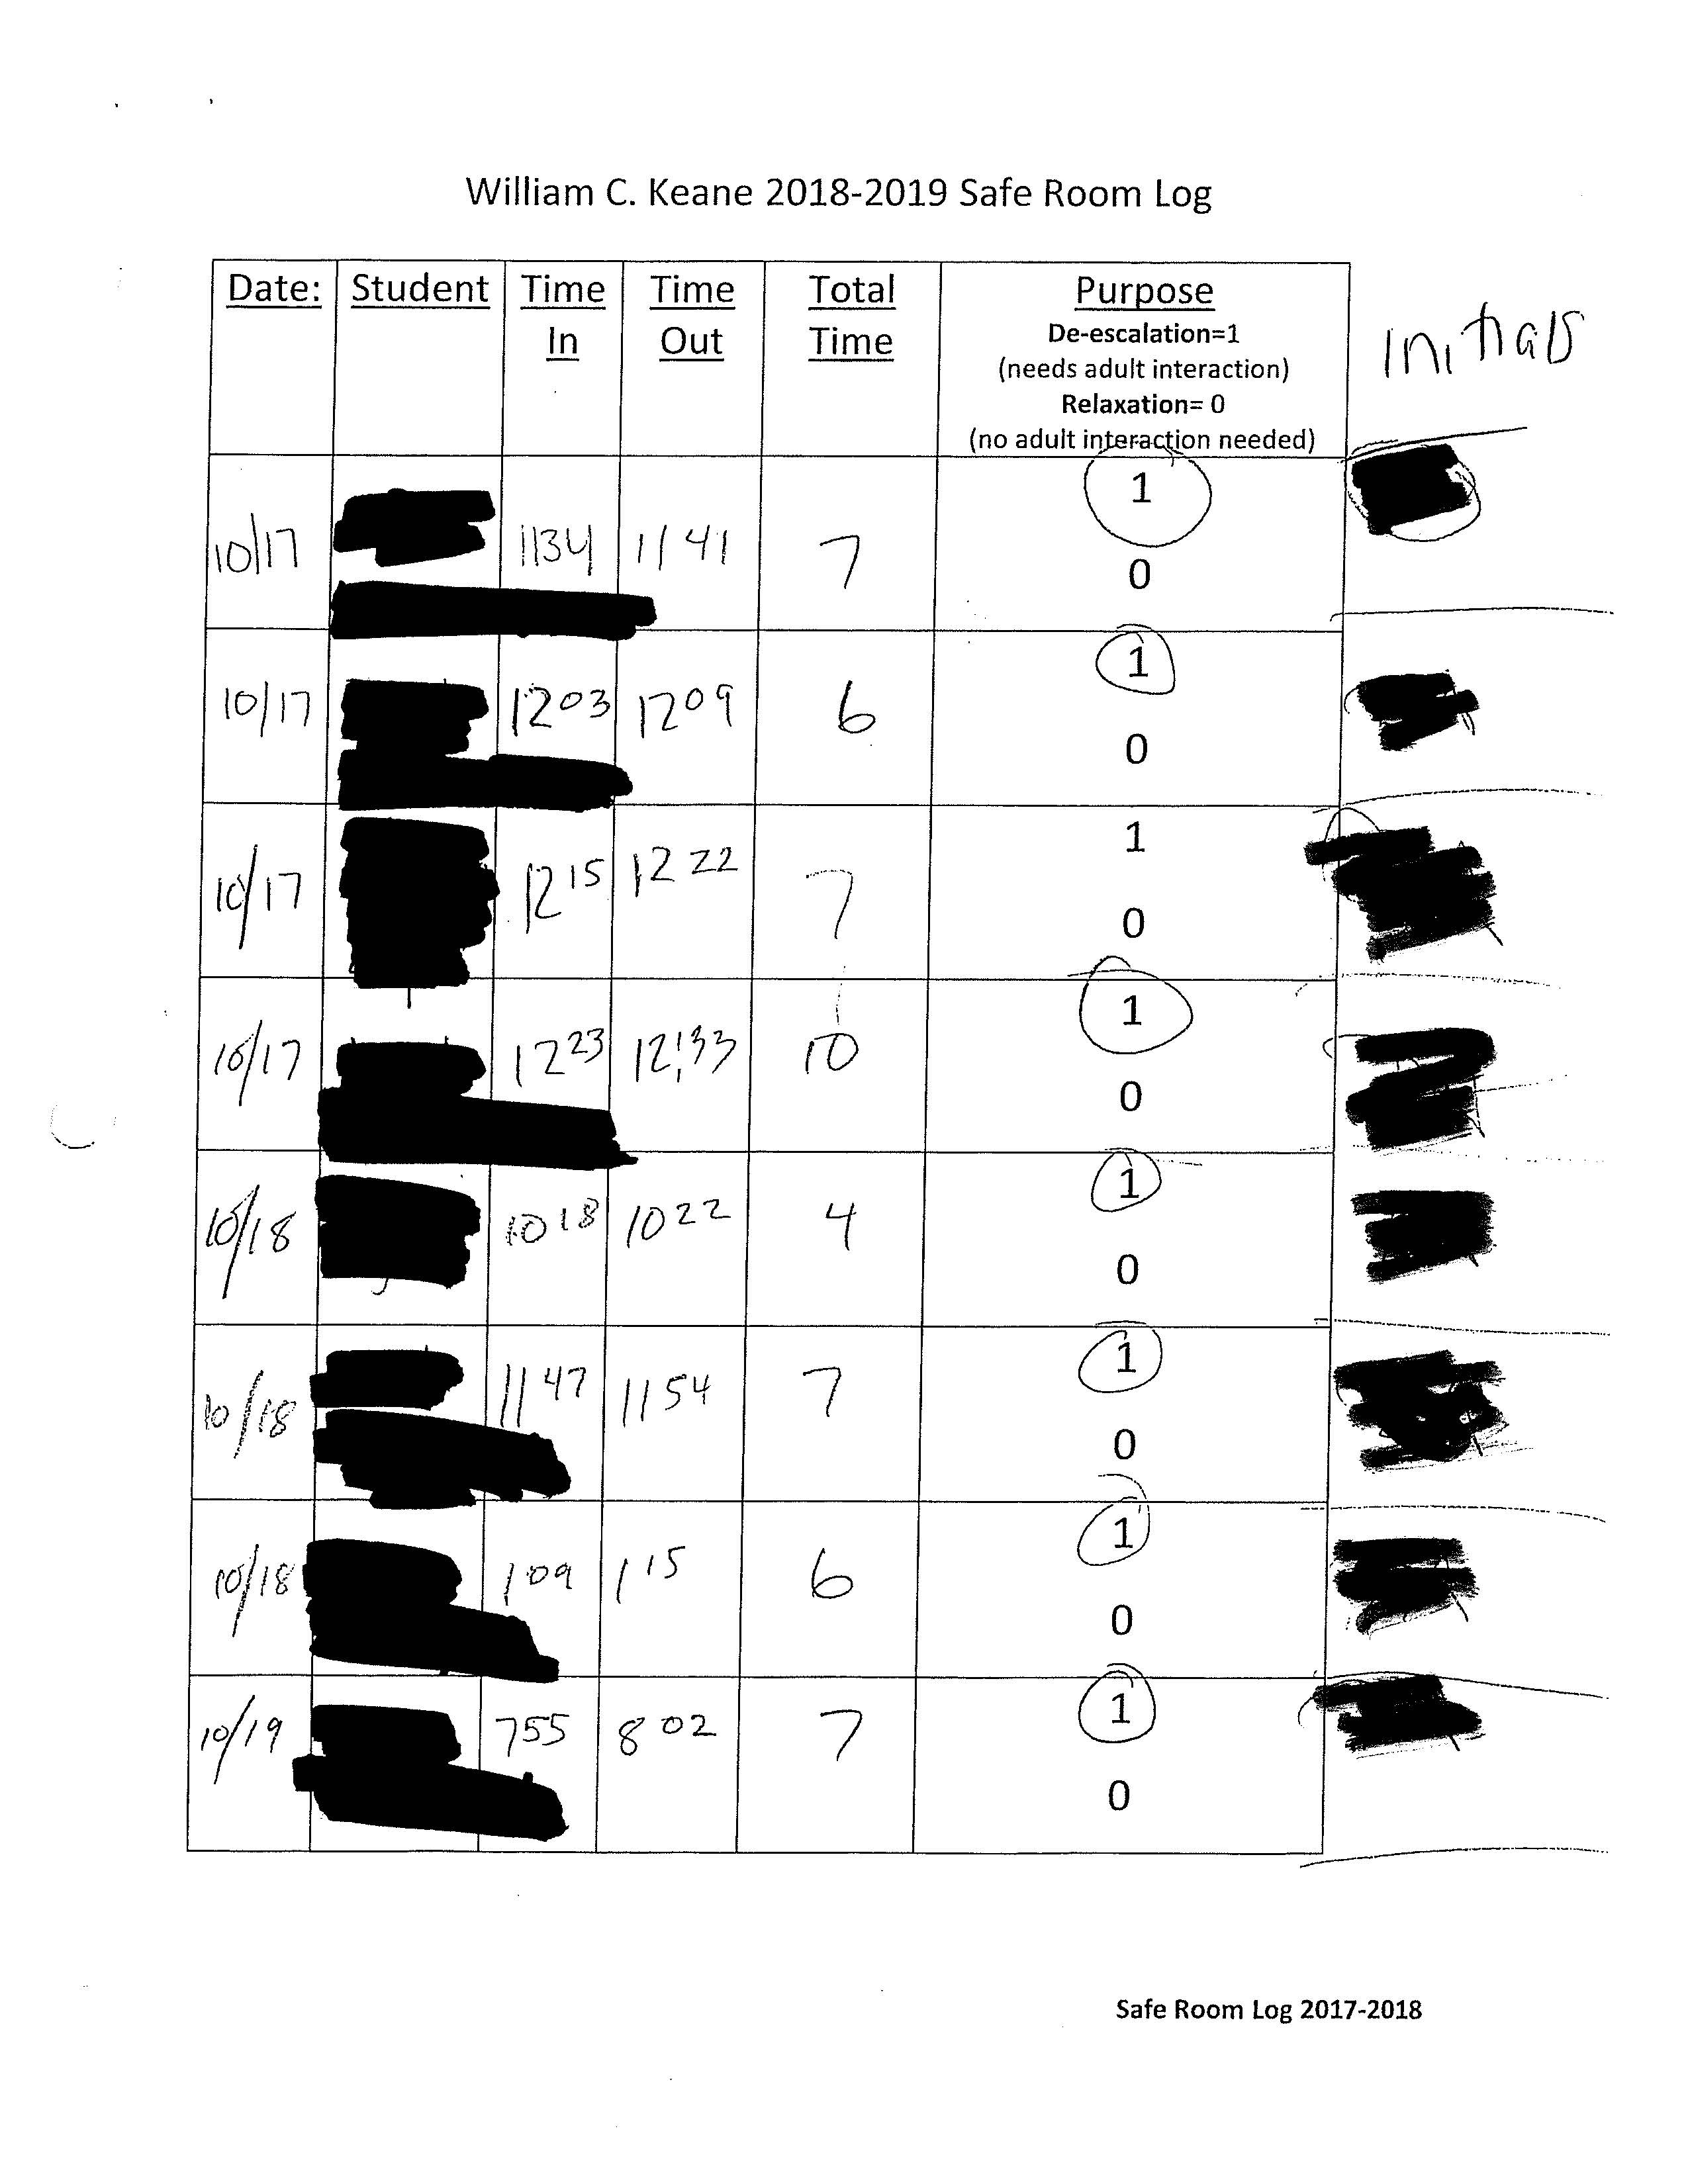 William C. Keane 2018-2019 Safe Room Log
Date: Student Time In Time Out Total Time Purpose
De-escalation=1
(needs adult interaction)
Relaxation= 0
(no adult interaction needed)
Initials
10/17 1134 1141 7 1
0
10/17 1203 1209 6 1
0
10/17 1215 1222 7 1
0
10/17 1223 12:33 10 1
0
10/18 1018 1022 4 1
0
10/18 1147 1154 7 1
0
10/18 109 115 6 1
0
10/19 755 802 7 1
0
Safe Room Log 2017-2018